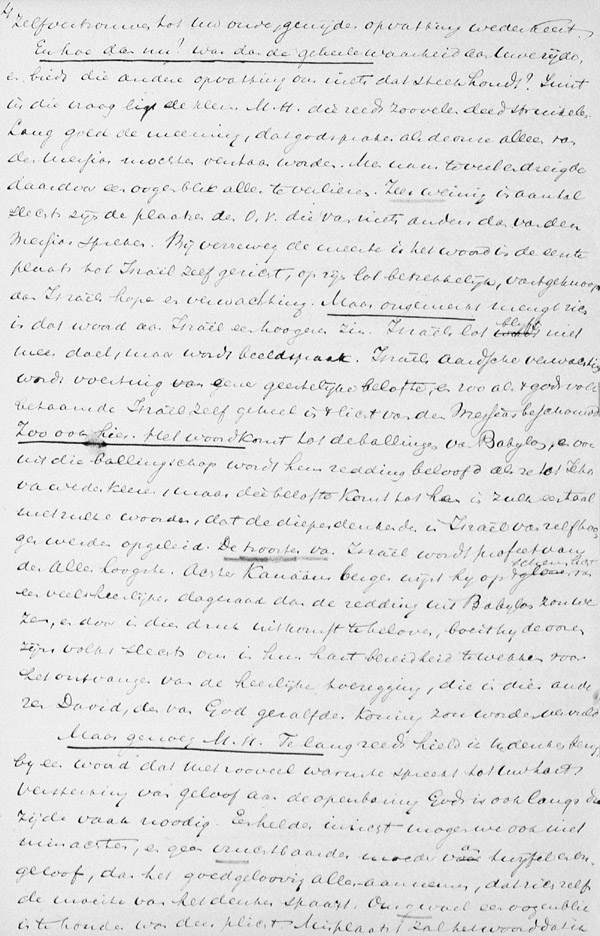 4)
zelfvertrouwen tot Uw oude, gewijde opvatting wederkeert.
En hoe dan nu! Was dan de geheele waarheid aan Uwe zijde,
en bied die andere opvatting ons niets dat steek houdt? Juist
in die vraag ligt de klem M.H. die reeds zoovelen deed struikelen.
Lang goed de meening, dat godspraken als de onze alleen van
den Messias mochten verstaan worden. Men nam te veel en dreigde
daardoor een oogenblik alles te verliezen. Zeer weinig in aantal
slechts zijn de plaatsen des O.V. die van niets anders dan van den
Messias spreken. Bij verreweg de meeste is het woord in de eerste
plaats tot Israël zelf gericht, op zijn lot betrekkelijk, vastgeknoopt
aan Israëls hope en verwachting. Maar ongemerkt mengt zich
in dat woord aan Israël een hoogere zin. Israëls lot blijft niet
meer doel, maar wordt beeldspraak. Israëls aardsche verwachting
wordt voertuig van gene geestelijke belofte, en zoo als + god volk
bestaande Israël zelf geheel in + licht van den Messias beschouwd
Zoo ook hier. Het woord komt tot de ballingen van Babylon, en voor
uit die ballingschap wordt hun redding beloofd als ze tot Jeho
va wederkeeren, maar die belofte komt tot hen in zulk een taal
met zulke woorden, dat de dieper denkende in Israël van zelf hoo
ger werden opgeleid. De trooster van Israël wordt profeet van
den Allerhoogste. Achter Kanaäns bergen wijst hy op schemerlicht van
een veel heerlijker dageraad dan de redding uit Babylon zou we
zen, en door in dien druk uitkomst te beloven, boeit hy de ooren
zijns volks slechts om in hun hart bereidheid te wekken voor
het ontvangen van de heerlijke toezegging, die in dien ande
ren David, den van God gezalfden Koning zou worden vervuld
Maar genoeg M.H. Te lang reeds hield ik U denkende bezig
by een woord dat met zooveel warmte spreekt tot Uw hart
versterking van geloof aan de openbaring Gods is ook langs die
zijde vaak noodig. Een helder inzicht mogen we ook niet
minachten, en geen vruchtbaarder moeder van twijfel en on
geloof, dan het goedgeloovig alles-aannemen, dat zich zelf
de moeite van het denken spaart. Ongewoel een oogenblik
in te houden was dan plicht. Misplaatst zal het woord dat ik